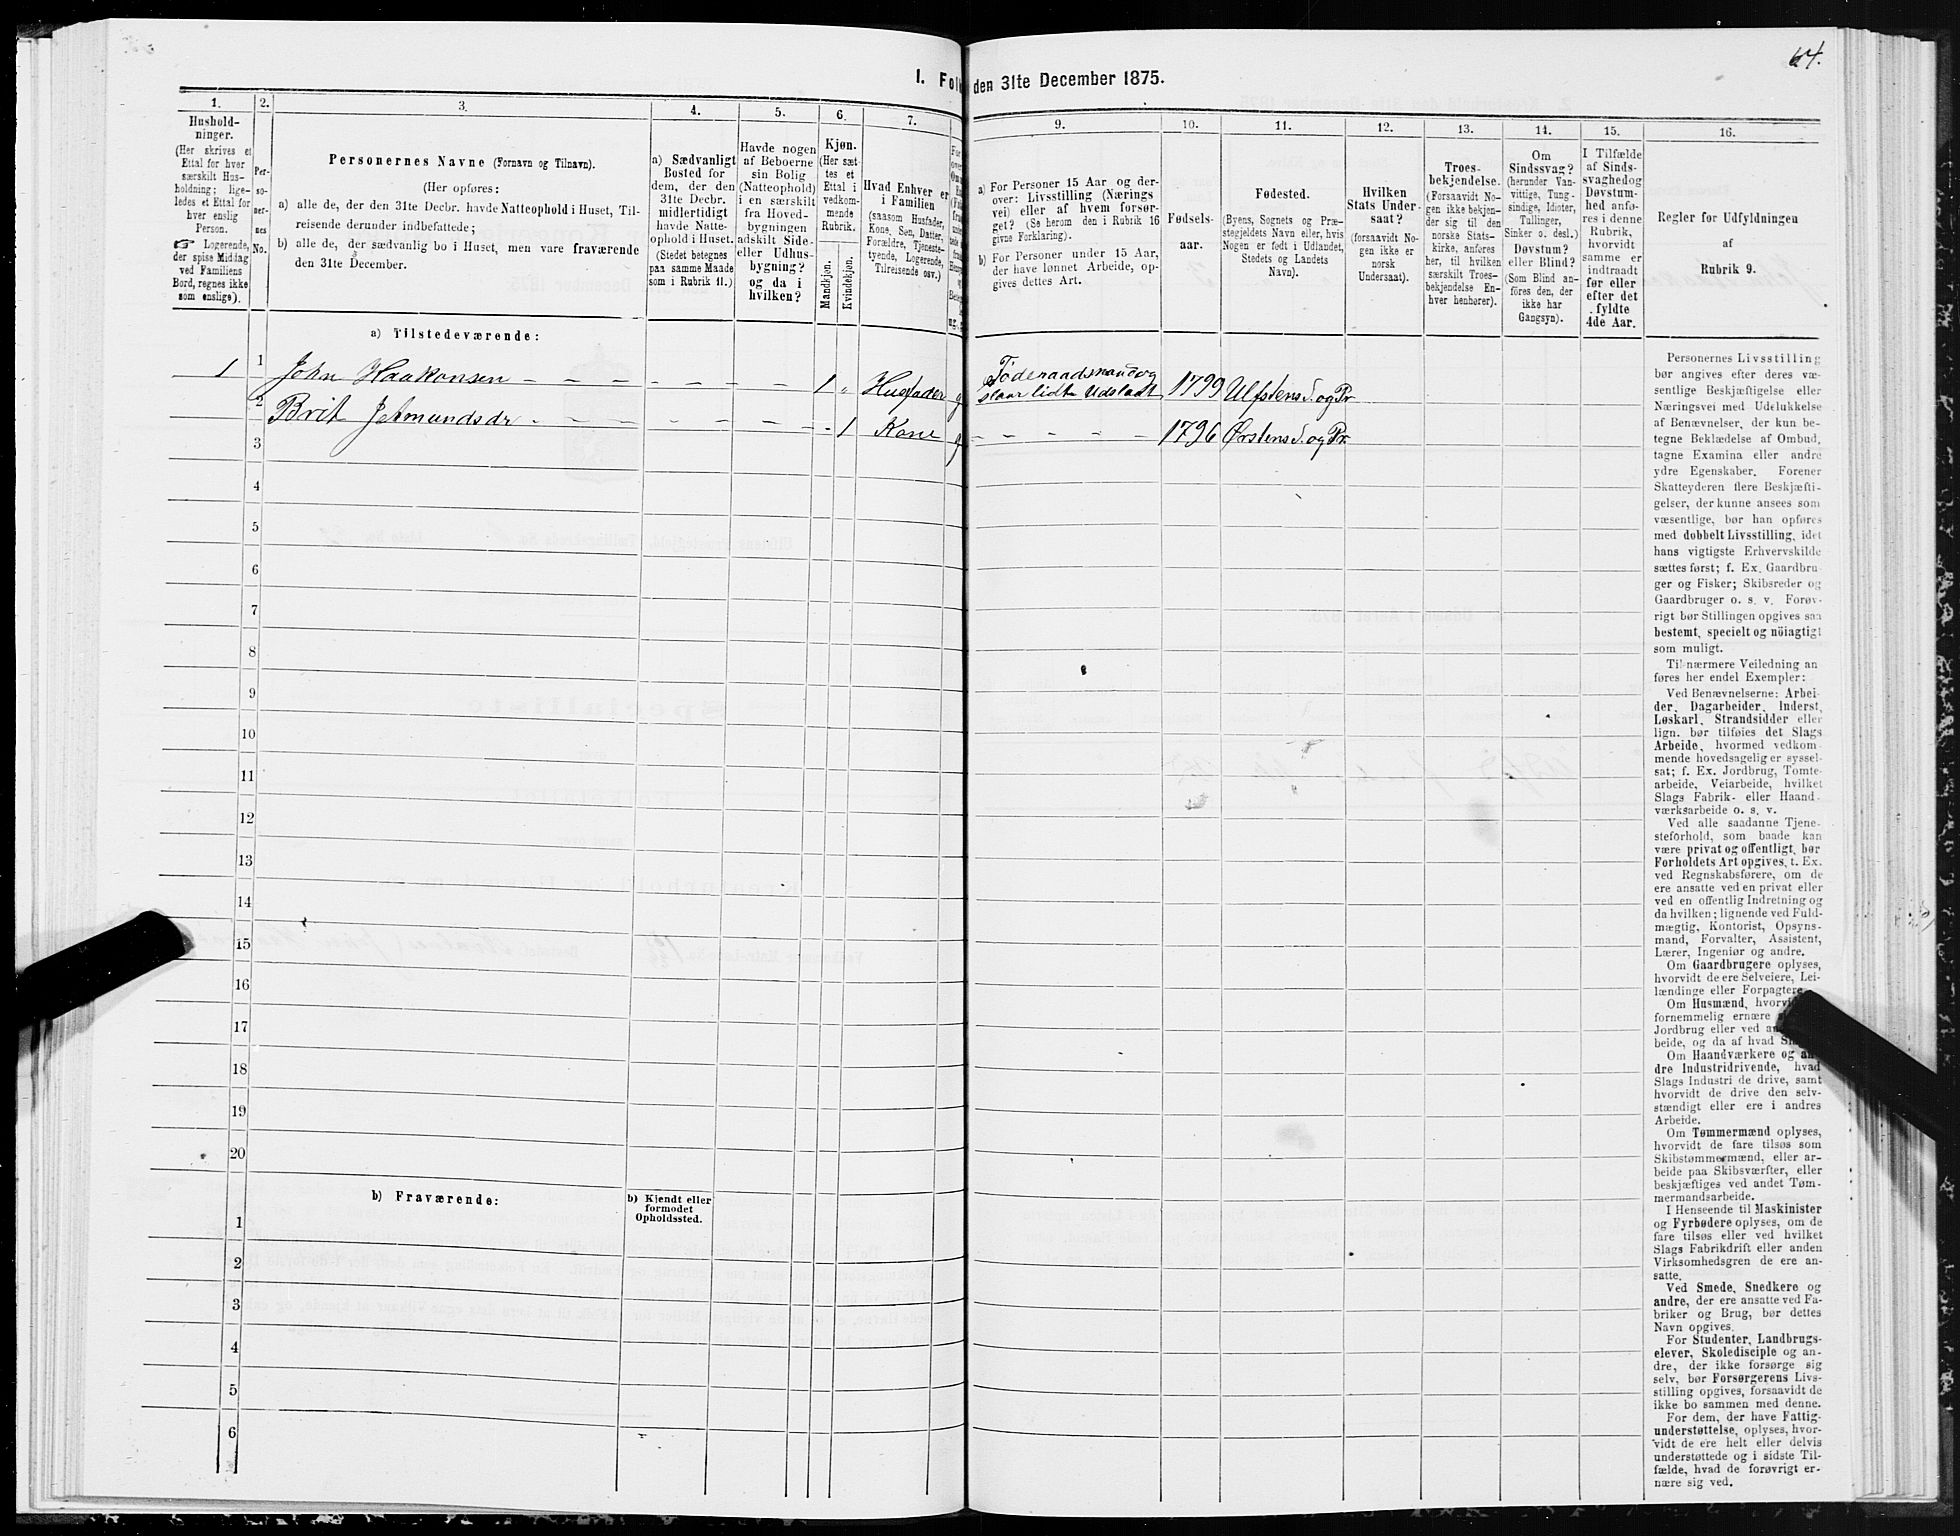 64.
I. Fol
den 31te December 1875.
1.
Hushold-
ninger.
(Her skrives et
Ettal for hver
særskilt Hus-
holdning; lige-
ledes et Ettal for
hver enslig
Person.
☞ Logerende,
der spise Middag
ved Familiens
Bord, regnes ikke
som enslige).
2.
Per-
so-
ner-
nes
No.
3.
Personernes Navne (Fornavn og Tilnavn).
(Her opføres:
a) alle de, der den 31te Decbr. havde Natteophold i Huset, Til-
reisende derunder indbefattede;
b) alle de, der sædvanlig bo i Huset, men vare fraværende
den 31te December.
4.
a) Sædvanligt
Bosted for
dem, der den
31te Decbr.
midlertidigt
havde Natte-
ophold i Huset.
(Stedet betegnes
paa samme Maade
som i Rubrik 11.)
5.
Havde nogen
af Beboerne
sin Bolig
(Natteophold)
i en særskilt
fra Hoved-
bygningen
adskilt Side-
eller Udhus-
bygning?
og da i
hvilken?
6.
Kjøn.
(Her sæt-
tes et
Ettal i
vedkom-
mende
Rubrik.
Mandkjøn.
Kvindekjøn.
7.
Hvad Enhver er
i Familien
(saasom Husfader,
Kone, Søn, Datter,
Forældre, Tjeneste-
tyende, Logerende,
Tilreisende osv.)
9.
a) For Personer 15 Aar og der-
over: Livsstilling (Nærings
vei) eller af hvem forsør-
get? (Se herom den i Rubrik 16
givne Forklaring).
b) For Personer under 15 Aar,
der have lønnet Arbeide, op-
gives dettes Art.
10.
Fødsels-
aar.
11.
Fødested.
(Byens, Sognets og Præ-
stegjeldets Navn eller, hvis
Nogen er født i Udlandet,
Stedets og Landets
Navn).
12.
Hvilken
Stats Under-
saat?
(forsaavidt No-
gen ikke er
norsk
Undersaat).
13.
Troes-
bekjendelse.
(Forsaavidt No-
gen ikke bekjen-
der sig til den
norske Stats-
kirke, anføres
her, til hvilken
særskilt Troes-
bekjendelse En-
hver henhører).
14.
Om
Sindssvag?
(herunder Van-
vittige, Tung-
sindige, Idioter,
Tullinger,
Sinker o. desl.)
Døvstum?
eller Blind?
(Som Blind an-
føres den, der
ikke har
Gangsyn).
15.
I Tilfælde
af Sinds-
svaghed og
Døvstum-
hed anfø-
res i denne
Rubrik,
hvorvidt
samme er
indtraadt
før eller
efter det
fyldte
4de Aar.
16.
Regler for Udfyldningen
af
Rubrik 9.
a) Tilstedeværende:
1 1 John Haakonsen – – – – – 1 „ Husfader g Føderaadsmand og
slaar lidt Udsladt 1799 Ulfstens S. og Pr
2 Brit Jetmundsdr – – – – – – 1 Kone g – – – – – 1796 Ørstens S. og Pr.
3
4
5
6
7
8
9
10
11
12
13
14
15
16
17
18
19
20
b) Fraværende:
b) Kjendt eller
formodet
Opholdssted.
1
2
3
4
5
6
Personernes Livsstilling
bør angives efter deres væ-
sentlige Beskjæftigelse eller
Næringsvei med Udelukkelse
af Benævnelser, der kun be-
tegne Beklædelse af Ombud,
tagne Examina eller andre
ydre Egenskaber. Forener
Skatteyderen flere Beskjæfti-
gelser, der kunne ansees som
væsentlige, bør han opføres
med dobbelt Livsstilling, idet
hans vigtigste Erhvervskilde
sættes først; f. Ex. Gaardbru-
ger og Fisker; Skibsreder og
Gaardbruger o. s. v. Forøv-
rigt bør Stillingen opgives saa
bestemt, specielt og nöiagtigt
som muligt.
Til nærmere Veiledning an
føres her endel Exempler:
Ved Benævnelserne: Arbei-
der, Dagarbeider, Inderst,
Løskarl, Strandsidder eller
lign. bør tilføies det Slags
Arbeide, hvormed vedkom-
mende hovedsagelig er syssel-
sat; f. Ex. Jordbrug, Tomte-
arbeide, Veiarbeide, hvilket
Slags Fabrik- eller Haand-
værksarbeide o. s. v.
Ved alle saadanne Tjene-
steforhold, som baade kan
være privat og offentligt, bør
Forholdets Art opgives, t. Ex.
ved Regnskabsførere, om de
ere ansatte ved en privat eller
ved en offentlig Indretning og
da hvilken; lignende ved Fuld-
mægtig, Kontorist, Opsyns-
mand, Forvalter, Assistent,
Lærer, Ingeniør og andre.
Om Gaardbrugere oplyses,
hvorvidt de ere Selveiere, Lei-
lændinge eller Forpagtere.
Om Husmænd, hvorvi
fornemmelig ernære
Jordbrug eller ved an
beide, og da af hvad S
Om Haandværkere og an-
dre Industridrivende, hvad
Slags Industri de drive, samt
hvorvidt de drive den selv-
stændigt eller ere i andres
Arbeide.
Om Tømmermænd oplyses,
hvorvidt de fare tilsøs som
Skibstømmermænd, eller ar-
beide paa Skibsværfter, eller
beskjæftiges ved andet Tøm-
mermandsarbeide.
I Henseende til Maskinister
og Fyrbødere oplyses, om de
fare tilsøs eller ved hvilket
Slags Fabrikdrift eller anden
Virksomhedsgren de ere an-
satte.
Ved Smede, Snedkere og
andre, der ere ansatte ved Fa-
briker og Brug, bør dettes
Navn opgives.
For Studenter, Landbrugs-
elever, Skoledisciple og an-
dre, der ikke forsørge sig
selv, bør Forsørgerens Livs-
stilling opgives, forsaavidt de
ikke bo sammen med denne.
For dem, der have Fattig-
understøttelse, oplyses, hvor-
vidt de ere helt eller delvis
understøttede og i sidste Til-
fælde, hvad de forøvrigt er-
nære sig ved.